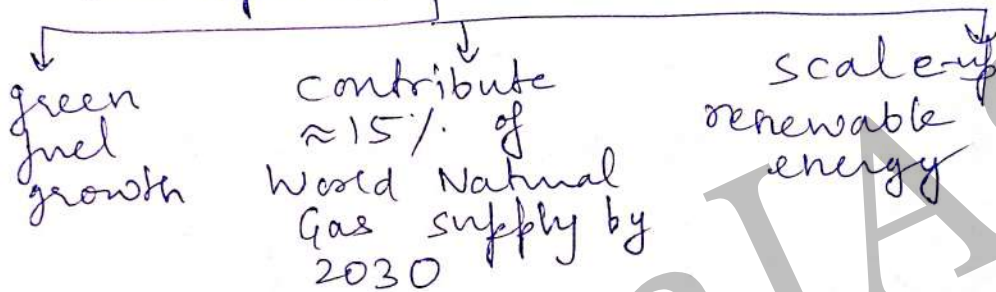 green
fuel
growth
contribute
≈15% of
World Natural
Gas supply by
2030
scale-up
renewable
energy
IAS